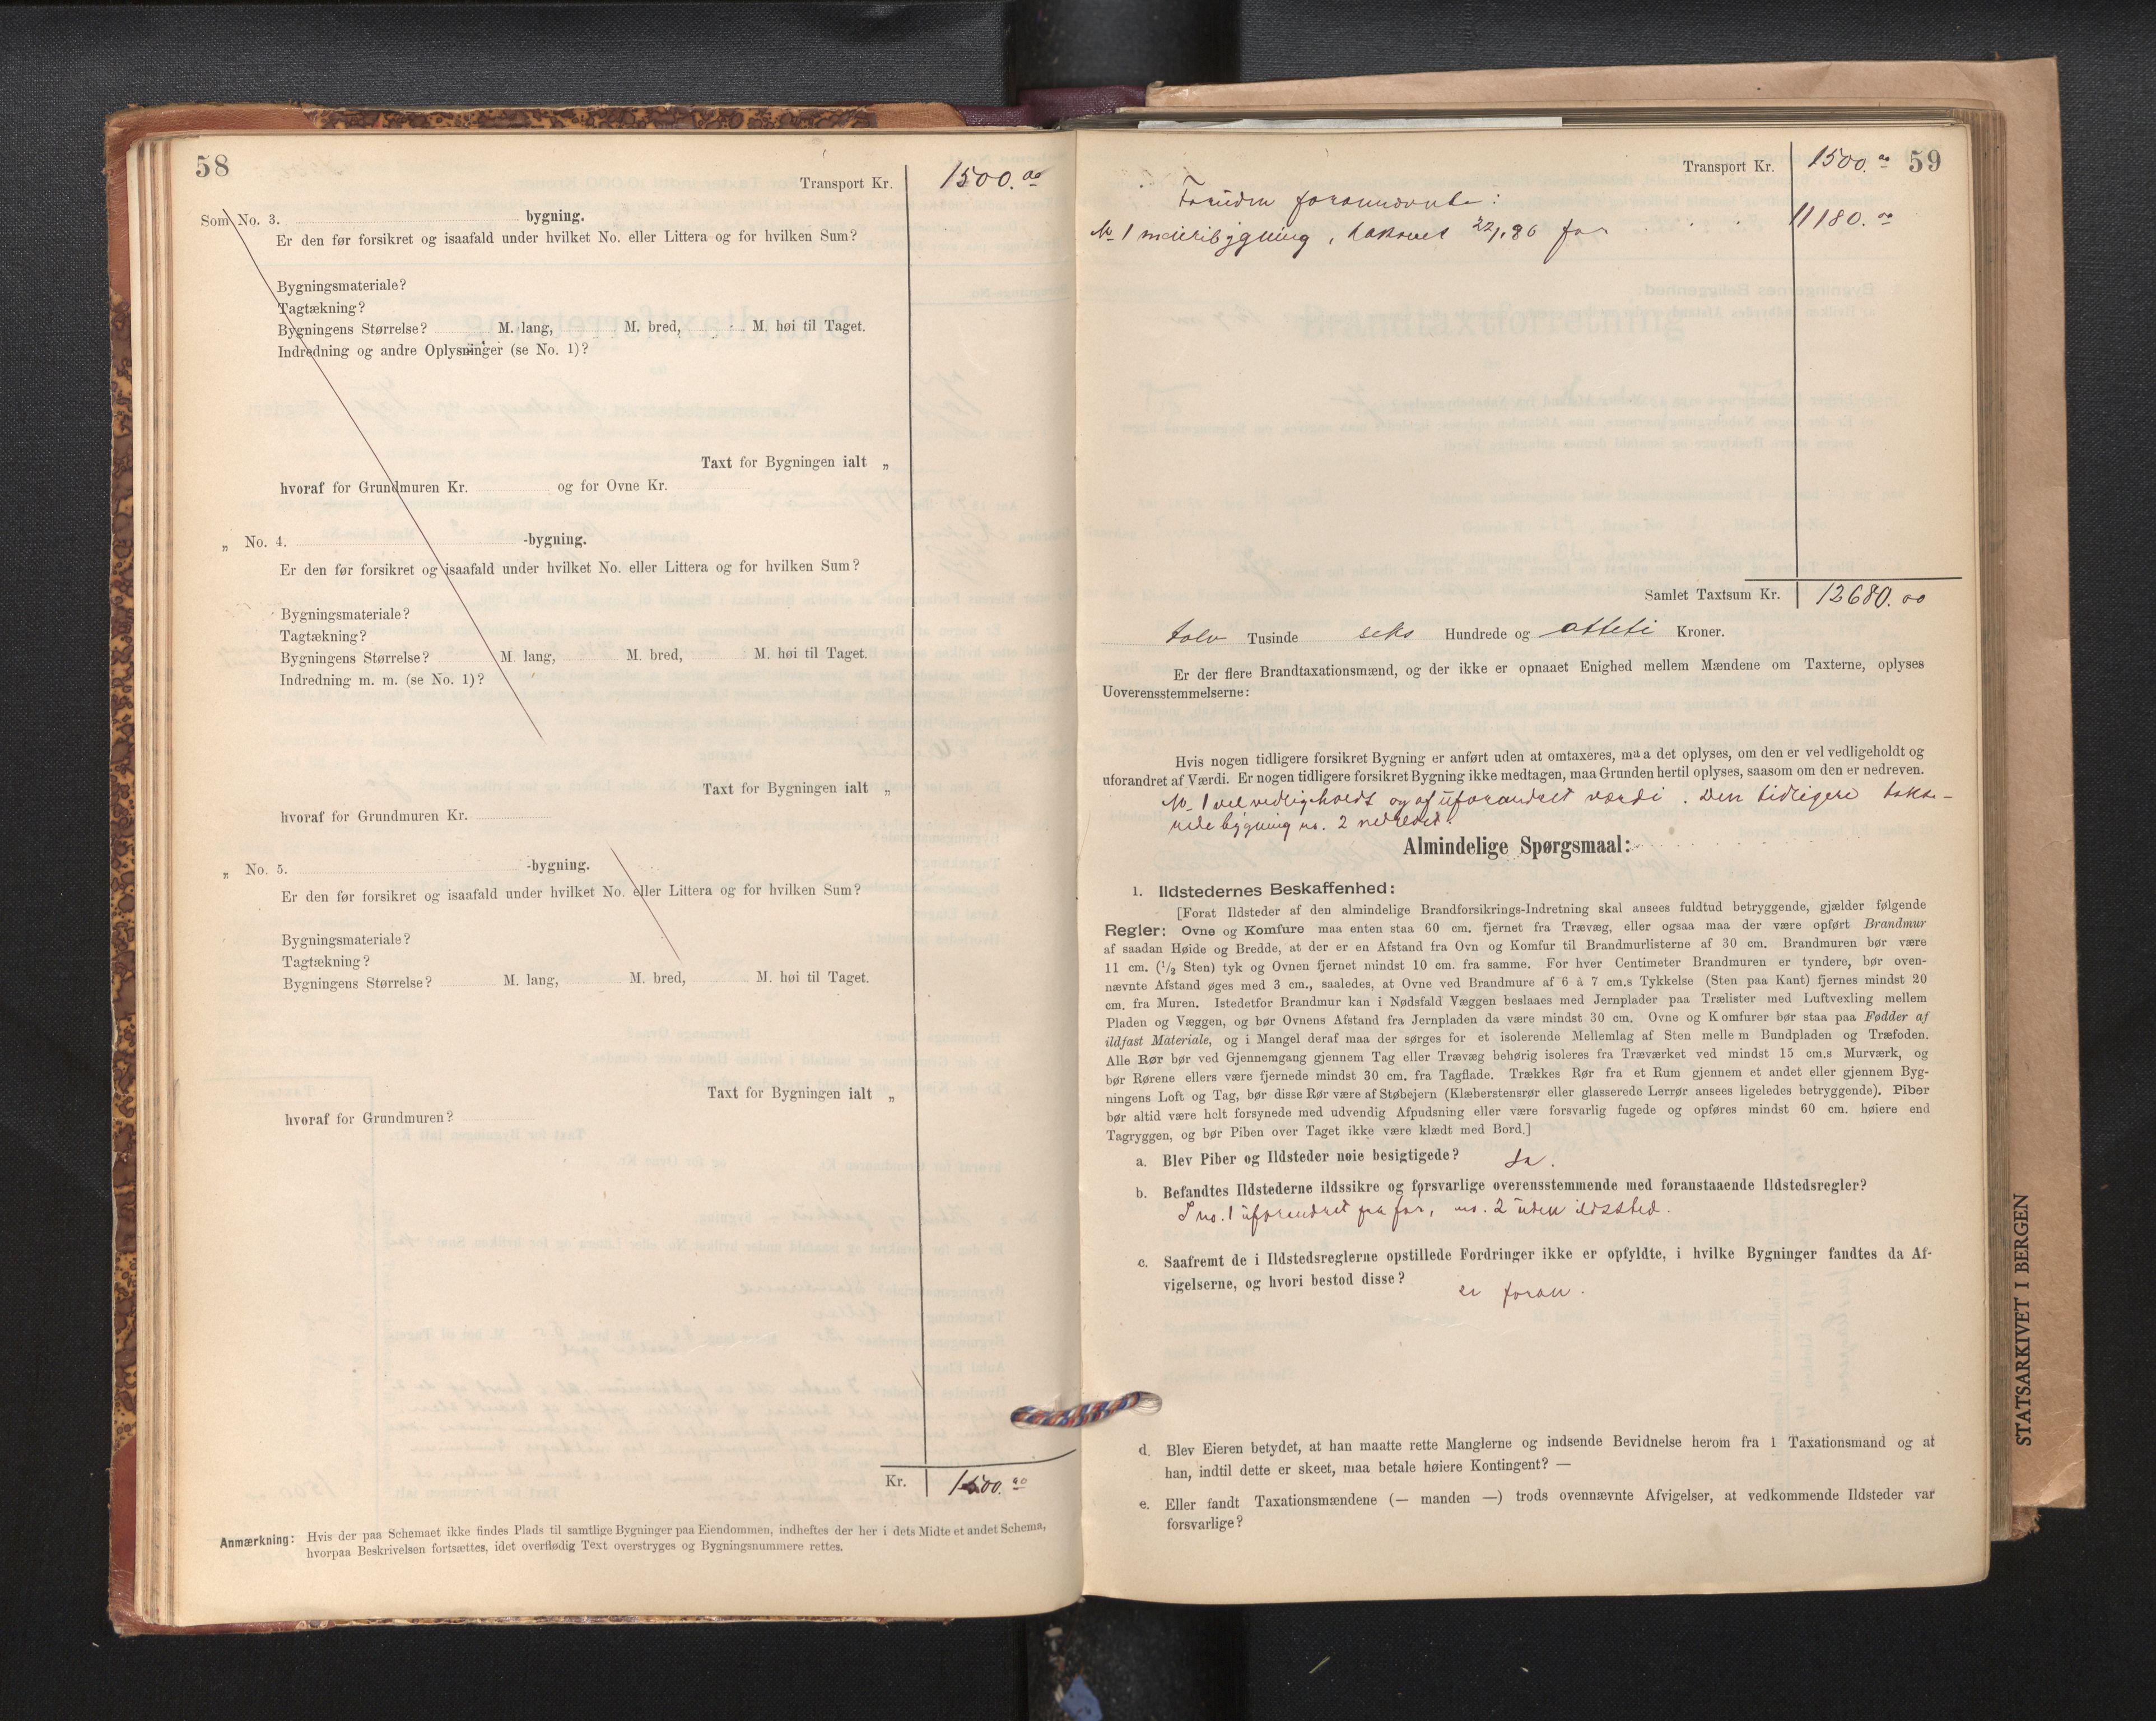 58
Transport Kr. 1500.00
Som No. 3. bygning.
Er den før forsikret og isaafald under hvilket No. eller Littera og for hvilken Sum?
Bygningsmateriale?
Tagtækning?
Bygningens Størrelse? M. lang, M. bred, M. høi til Taget.
Indredning og andre Oplysninger (se No. 1)?
Taxt for Bygningen ialt „
hvoraf for Grundmuren Kr. og for Ovne Kr.
„ No. 4. -bygning.
Er den før forsikret og isaafald under hvilket No. eller Littera og for hvilken Sum?
Bygningsmateriale?
Tagtækning?
Bygningens Størrelse? M lang, M. bred, M. høi til Taget.
Indredning m. m. (se No. 1)?
Taxt for Bygningen ialt „
hvoraf for Grundmuren Kr.
„ No. 5. -bygning.
Er den før forsikret og isaafald under hvilket No. eller Littera og for hvilken Sum?
Bygningsmateriale?
Tagtækning?
Bygningens Størrelse? M. lang, M. bred, M. høi til Taget.
Taxt for Bygningen ialt „
hvoraf for Grundmuren?
Kr. 1500.00
Anmærkning: Hvis der paa Schemaet ikke findes Plads til samtlige Bygninger paa Eiendommen, indheftes der her i dets Midte et andet Schema,
hvorpaa Beskrivelsen fortsættes, idet overflødig Text overstryges og Bygningsnummere rettes.
Transport Kr. 1500.00 59
Foruden forannævnte:
No 1 meieribygning, takseret 22/1 86 for 11180.00
Samlet Taxtsum Kr. 12680.00
tolv Tusinde seks Hundrede og otteti Kroner.
Er der flere Brandtaxationsmænd, og der ikke er opnaaet Enighed mellem Mændene om Taxterne, oplyses
Uoverensstemmelserne:
Hvis nogen tidligere forsikret Bygning er anført uden at omtaxeres, maa det oplyses, om den er vel vedligeholdt og
uforandret af Værdi. Er nogen tidligere forsikret Bygning ikke medtagen, maa Grunden hertil oplyses, saasom om den er nedreven.
No 1 vel vedligeholdt og af uforandret værdi. Den tidligere takse-
rede bygning no. 2
Almindelige Spørgsmaal:
1. Ildstedernes Beskaffenhed:
[Forat Ildsteder af den almindelige Brandforsikrings-Indretning skal ansees fuldtud betryggende, gjælder følgende
Regler: Ovne og Komfure maa enten staa 60 cm. fjernet fra Trævæg, eller ogsaa maa der være opført Brandmur
af saadan Høide og Bredde, at der er en Afstand fra Ovn og Komfur til Brandmurlisterne af 30 cm. Brandmuren bør være
11 cm. (1/2 Sten) tyk og Ovnen fjernet mindst 10 cm. fra samme. For hver Centimeter Brandmuren er tyndere, bør oven-
nævnte Afstand øges med 3 cm., saaledes, at Ovne ved Brandmure af 6 à 7 cm.s Tykkelse (Sten paa Kant) fjernes mindst 20
cm. fra Muren. Istedetfor Brandmur kan i Nødsfald Væggen beslaaes med Jernplader paa Trælister med Luftvexling mellem
Pladen og Væggen, og bør Ovnens Afstand fra Jernpladen da være mindst 30 cm. Ovne og Komfurer bør staa paa Fødder af
ildfast Materiale, og i Mangel deraf maa der sørges for et isolerende Mellemlag af Sten mellem Bundpladen og Træfoden.
Alle Rør bør ved Gjennemgang gjennem Tag eller Trævæg behørig isoleres fra Træværket ved mindst 15 cm.s Murværk, og
bør Rørene ellers være fjernede mindst 30 cm. fra Tagflade. Trækkes Rør fra et Rum gjennem et andet eller gjennem Byg-
ningens Loft og Tag, bør disse Rør være af Støbejern (Klæberstensrør eller glasserede Lerrør ansees ligeledes betryggende). Piber
bør altid være helt forsynede med udvendig Afpudsning eller være forsvarlig fugede og opføres mindst 60 cm. høiere end
Tagryggen, og bør Piben over Taget ikke være klædt med Bord.]
a. Blev Piber og Ildsteder nøie besigtigede? Ja.
b. Befandtes Ildstederne ildssikre og forsvarlige overensstemmende med foranstaaende Ildstedsregler?
I no. 1 uforandret fra før, no. 2 uden ildsted.
c. Saafremt de i Ildstedsreglerne opstillede Fordringer ikke er opfyldte, i hvilke Bygninger fandtes da Af-
vigelserne, og hvori bestod disse? er foran.
d. Blev Eieren betydet, at han maatte rette Manglerne og indsende Bevidnelse herom fra 1 Taxationsmand og at
han, indtil dette er skeet, maa betale høiere Kontingent? —
e. Eller fandt Taxationsmændene (— manden —) trods ovennævnte Afvigelser, at vedkommende Ildsteder var
forsvarlige?
STATSARKIVET I BERGEN